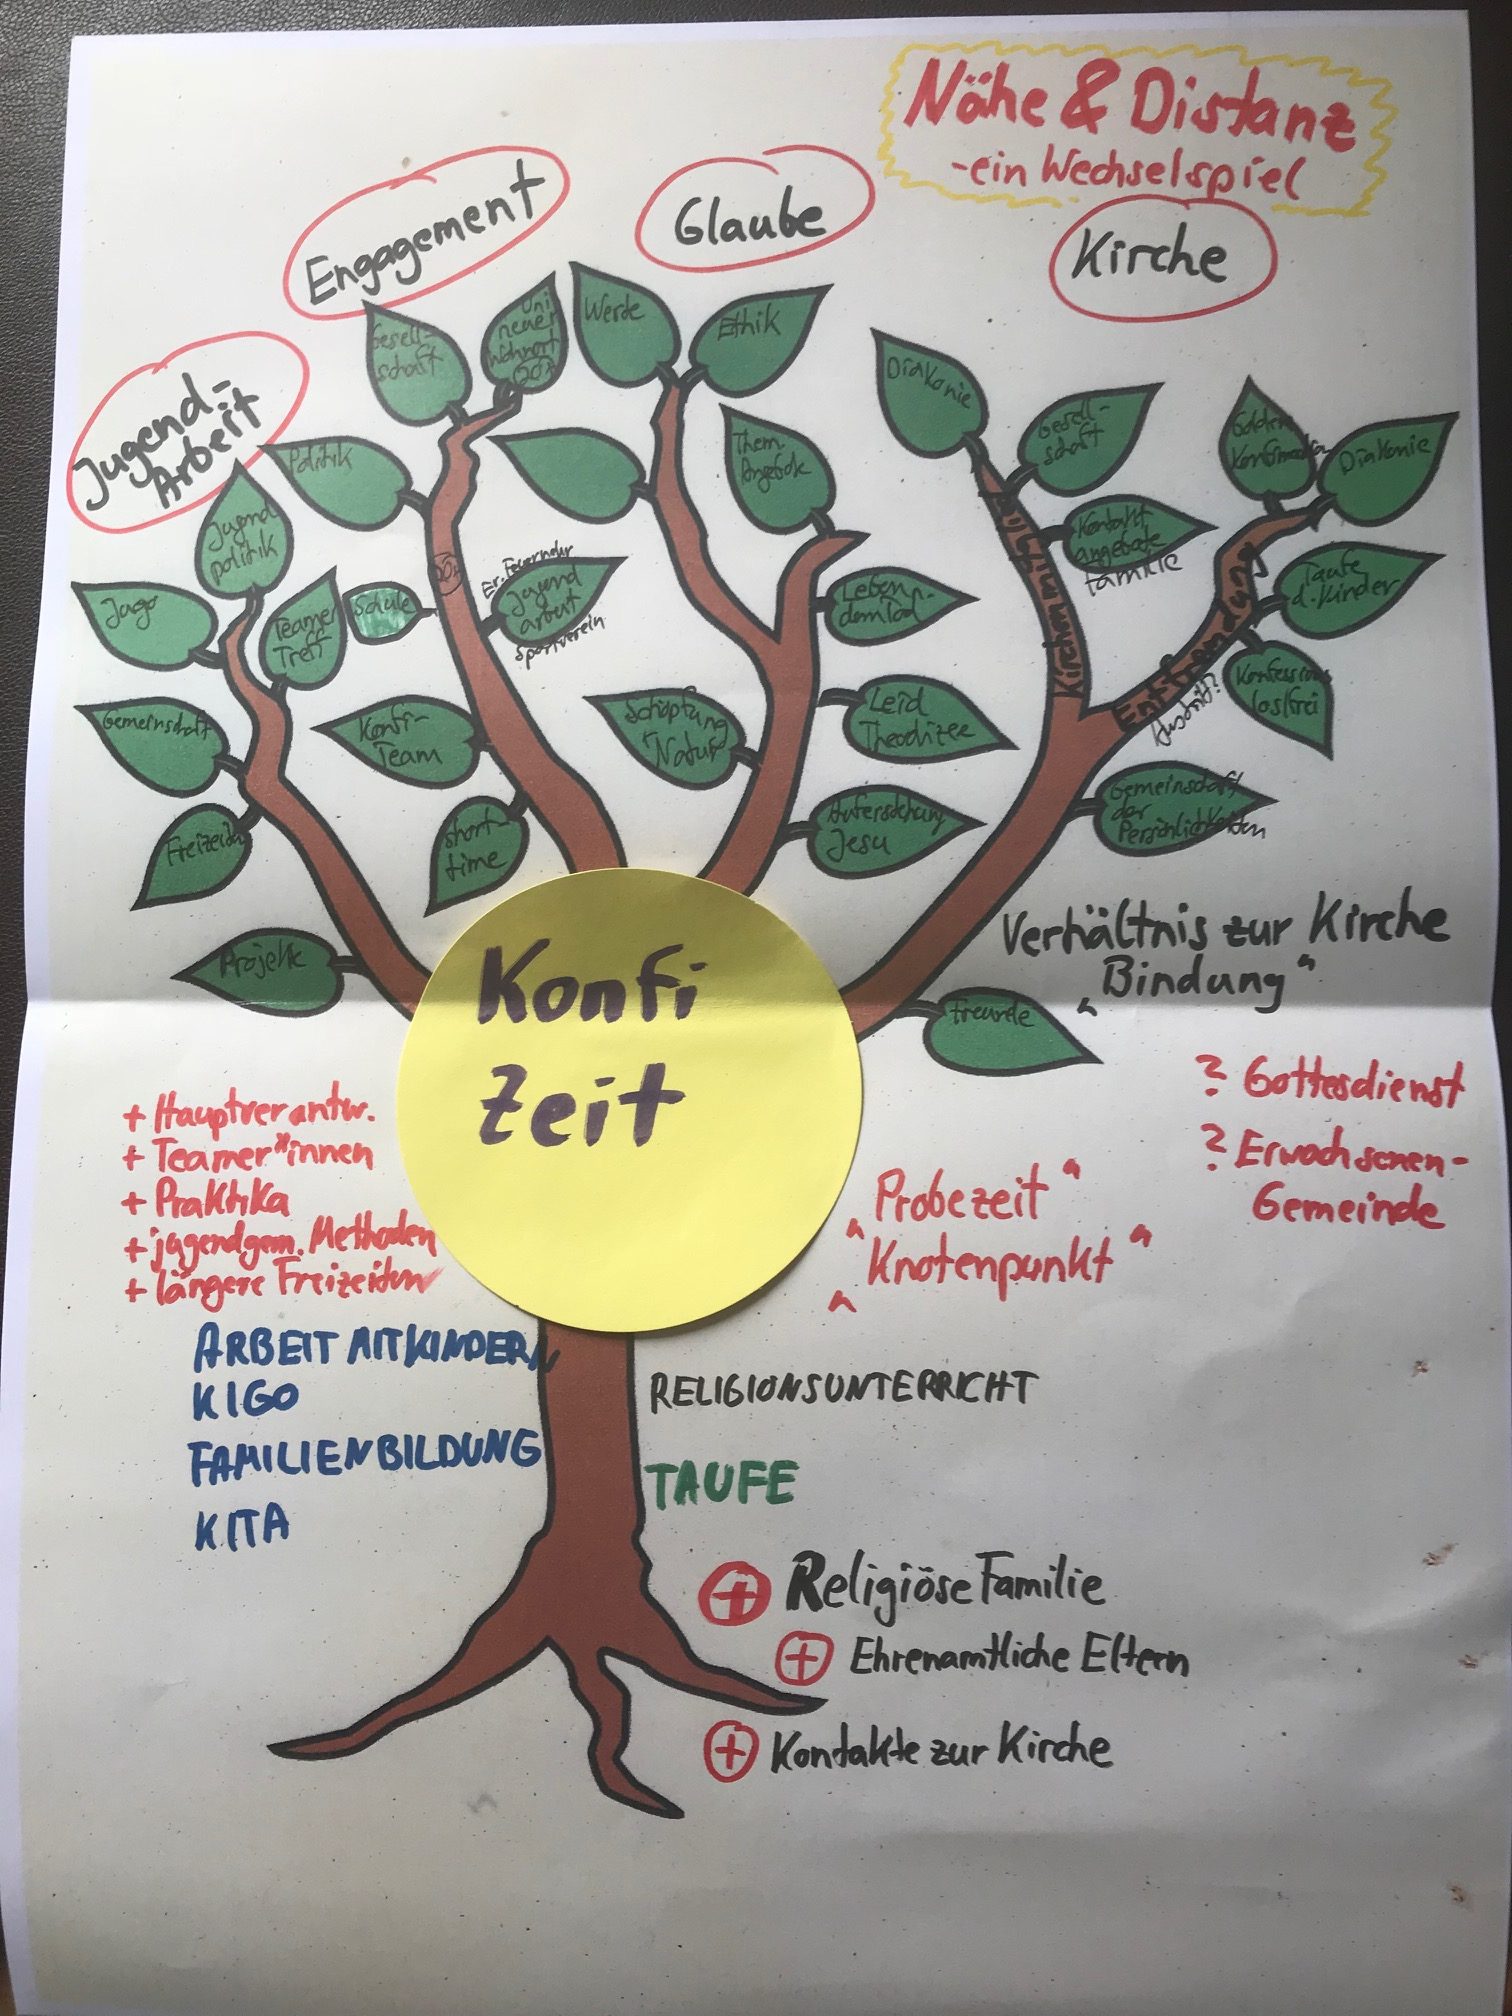 Nähe & Distanz
-ein Wechselspiel
Jugend-
Arbeit
Engagement
Glaube
Kirche
Jugend
politik
Jago
Teamer
Treff
Gemeinschaft
Freizeiten
Projekte
Gesell-
schaft
Uni
neuer
Wohnort
Politik
Schule
Er. Feuerwehr
Jugend
arbeit
Sportverein
Konfi-
Team
Short-
time
Werte
Ethik
Them.
Angebote
Leben
Leid
Theodizee
Schöpfung
"Natur"
Auferstehung
Jesu
Diakonie
Gesell-
schaft
Kontakt
angebote
Familie
Kirchenmit
Goldene
Diakonie
Taufe
d. Kinder
Konfessions
los/frei
Entfremdung
Austritt?
Gemeinschaft
der
Persönlichkeiten
Freunde
Verhältnis zur Kirche
"Bindung"
Konfi
Zeit
+ Hauptverantw.
+ Teamer*innen
+ Praktika
+ jugendgem. Methoden
+ längere Freizeiten
? Gottesdienst
? Erwachsenen-
Gemeinde
"Probezeit"
"Knotenpunkt"
ARBEIT MIT KINDERN
KIGO
FAMILIENBILDUNG
KITA
RELIGIONSUNTERRICHT
TAUFE
+ Religiöse Familie
+ Ehrenamtliche Eltern
+ Kontakte zur Kirche